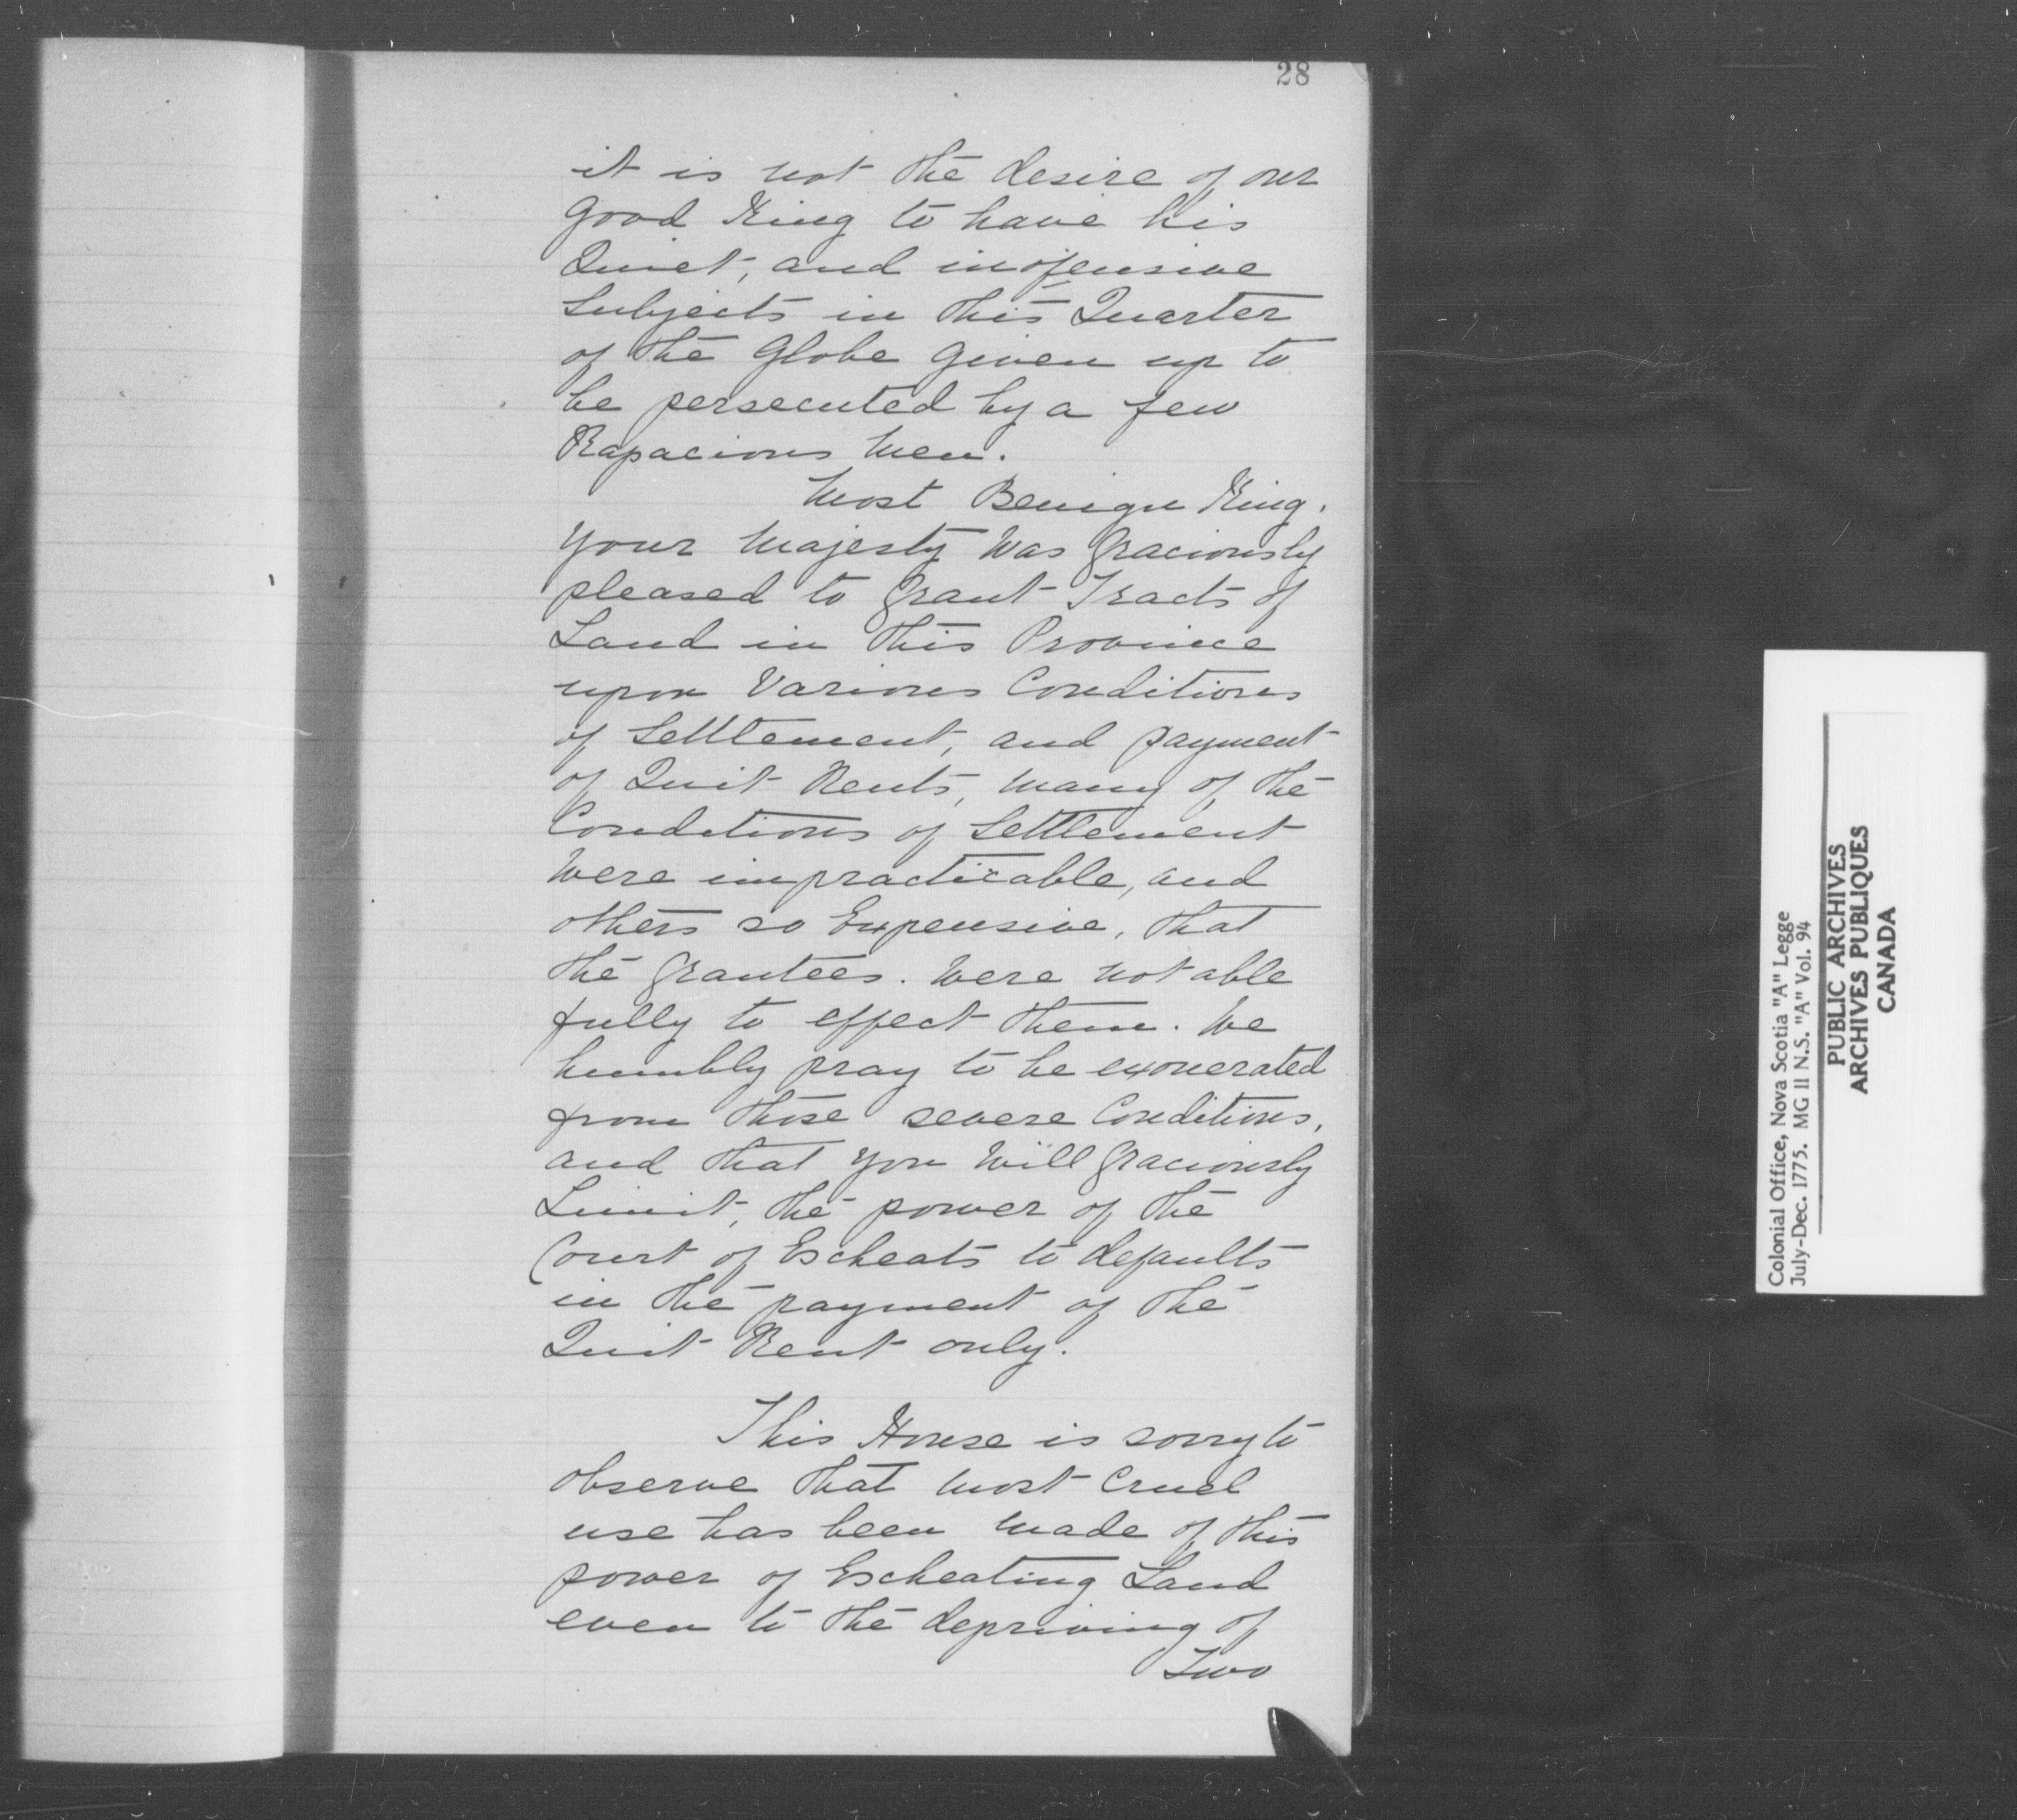 28
it is not the desire of our
Good King to have his
Quiet, and inofensive
Subjects in this Quarter
of the Globe Given up to
be persecuted by a few
Rapacious Men.
Most Benign King.
Your Majesty Was Graciously
pleased to Grant Tracts of
Land in this Province
upon Various Conditions
of Settlement, and payment
of Quit Rents, Many of the
Conditions of Settlement
Were impracticable, and
others so Expensive, that
the Grantees. Were not able
fully to effect them. We
humbly pray to be exonerated
from those severe Conditions,
and that You Will Graciously
Limit, the power of the
Court of Escheats to defaults
in the payment of the
Quit Rent only.
This House is sorry to
observe that Most Cruel
use has been Made of this
power of Escheating Land
even to the depriving of
Two
Colonial Office, Nova Scotia "A" Legge
July-Dec. 1775. MG 11 N.S. "A" Vol. 94
PUBLIC ARCHIVES
ARCHIVES PUBLIQUES
CANADA